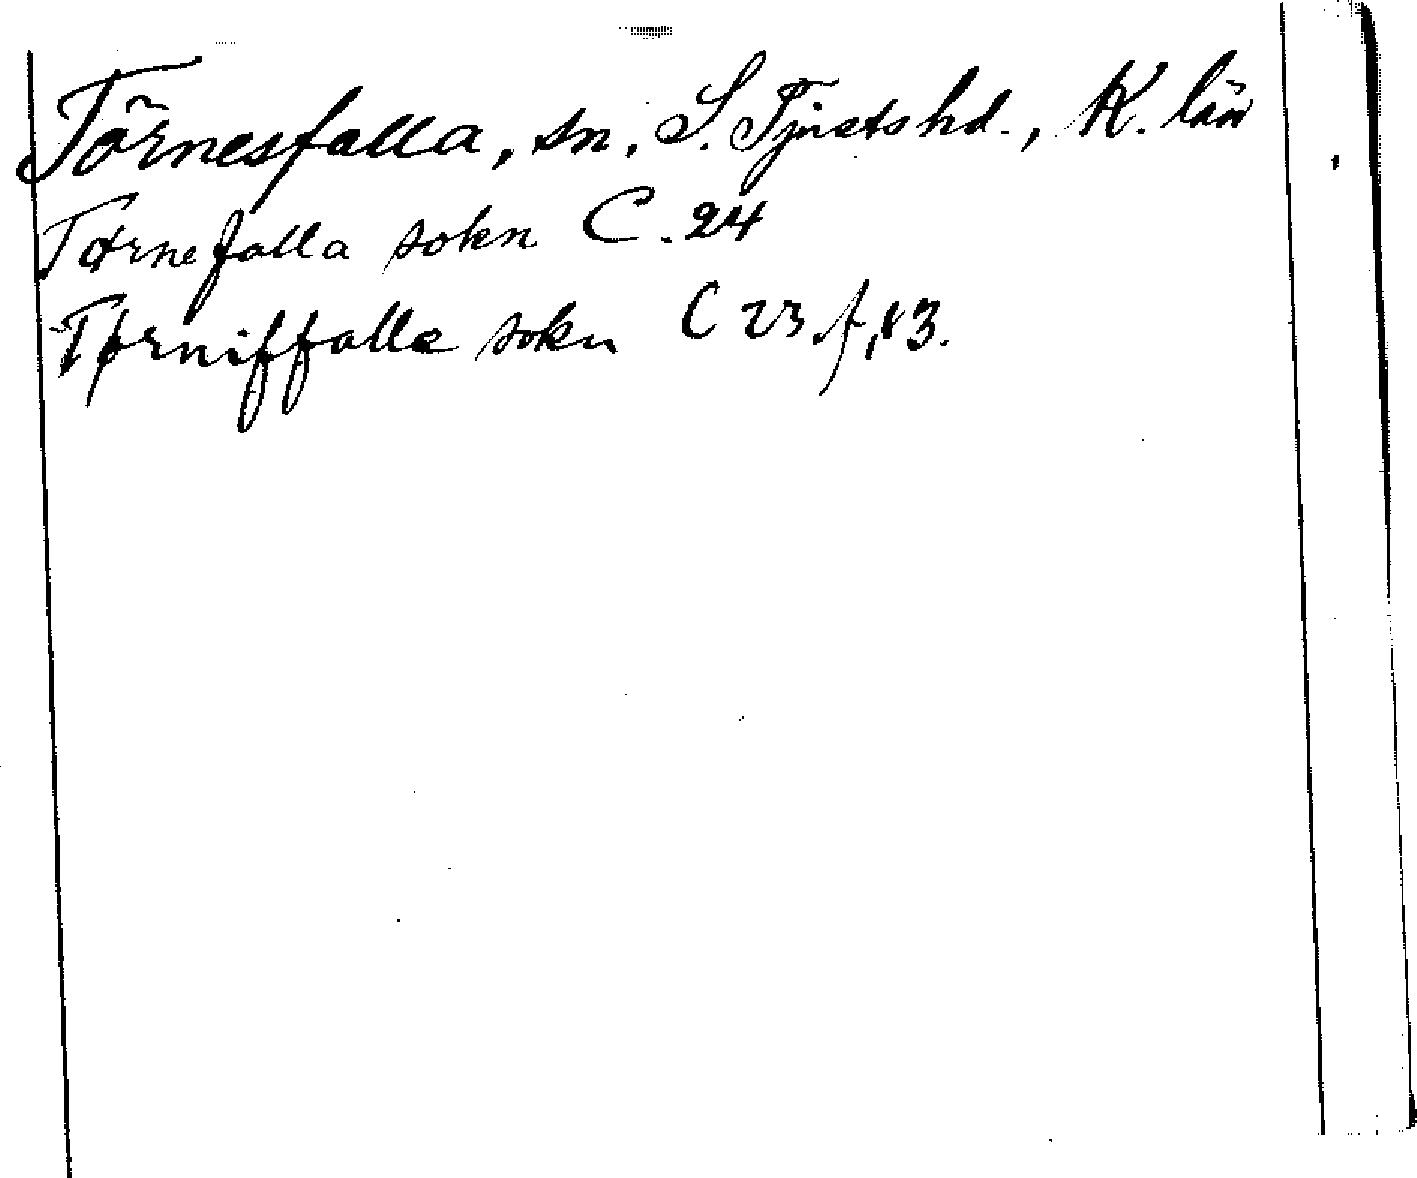 Törnesfalla, sn, S. Tjustshd., K. län
Tørnefalla sokn C. 24
Tørniffalla sokn C 23 f, 83.